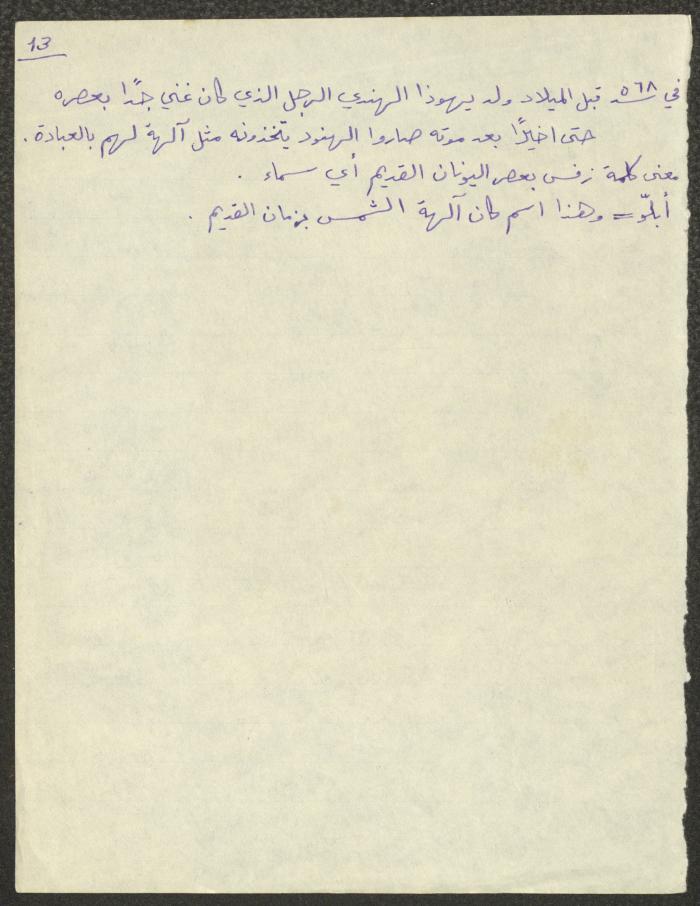 13
في ٥٦٨ سنة قبل الميلاد ولد يهوذا الهندي الرجل الذي كان غني جدًا بعصره
حتى اخيرًا بعد موته صاروا الهنود يتخذونه مثل آلهة لهم بالعبادة .
معنى كلمة زفس بعصر اليونان القديم أي سماء .
أبلّو = وهذا اسم كان آلهة الشمس بزمان القديم .